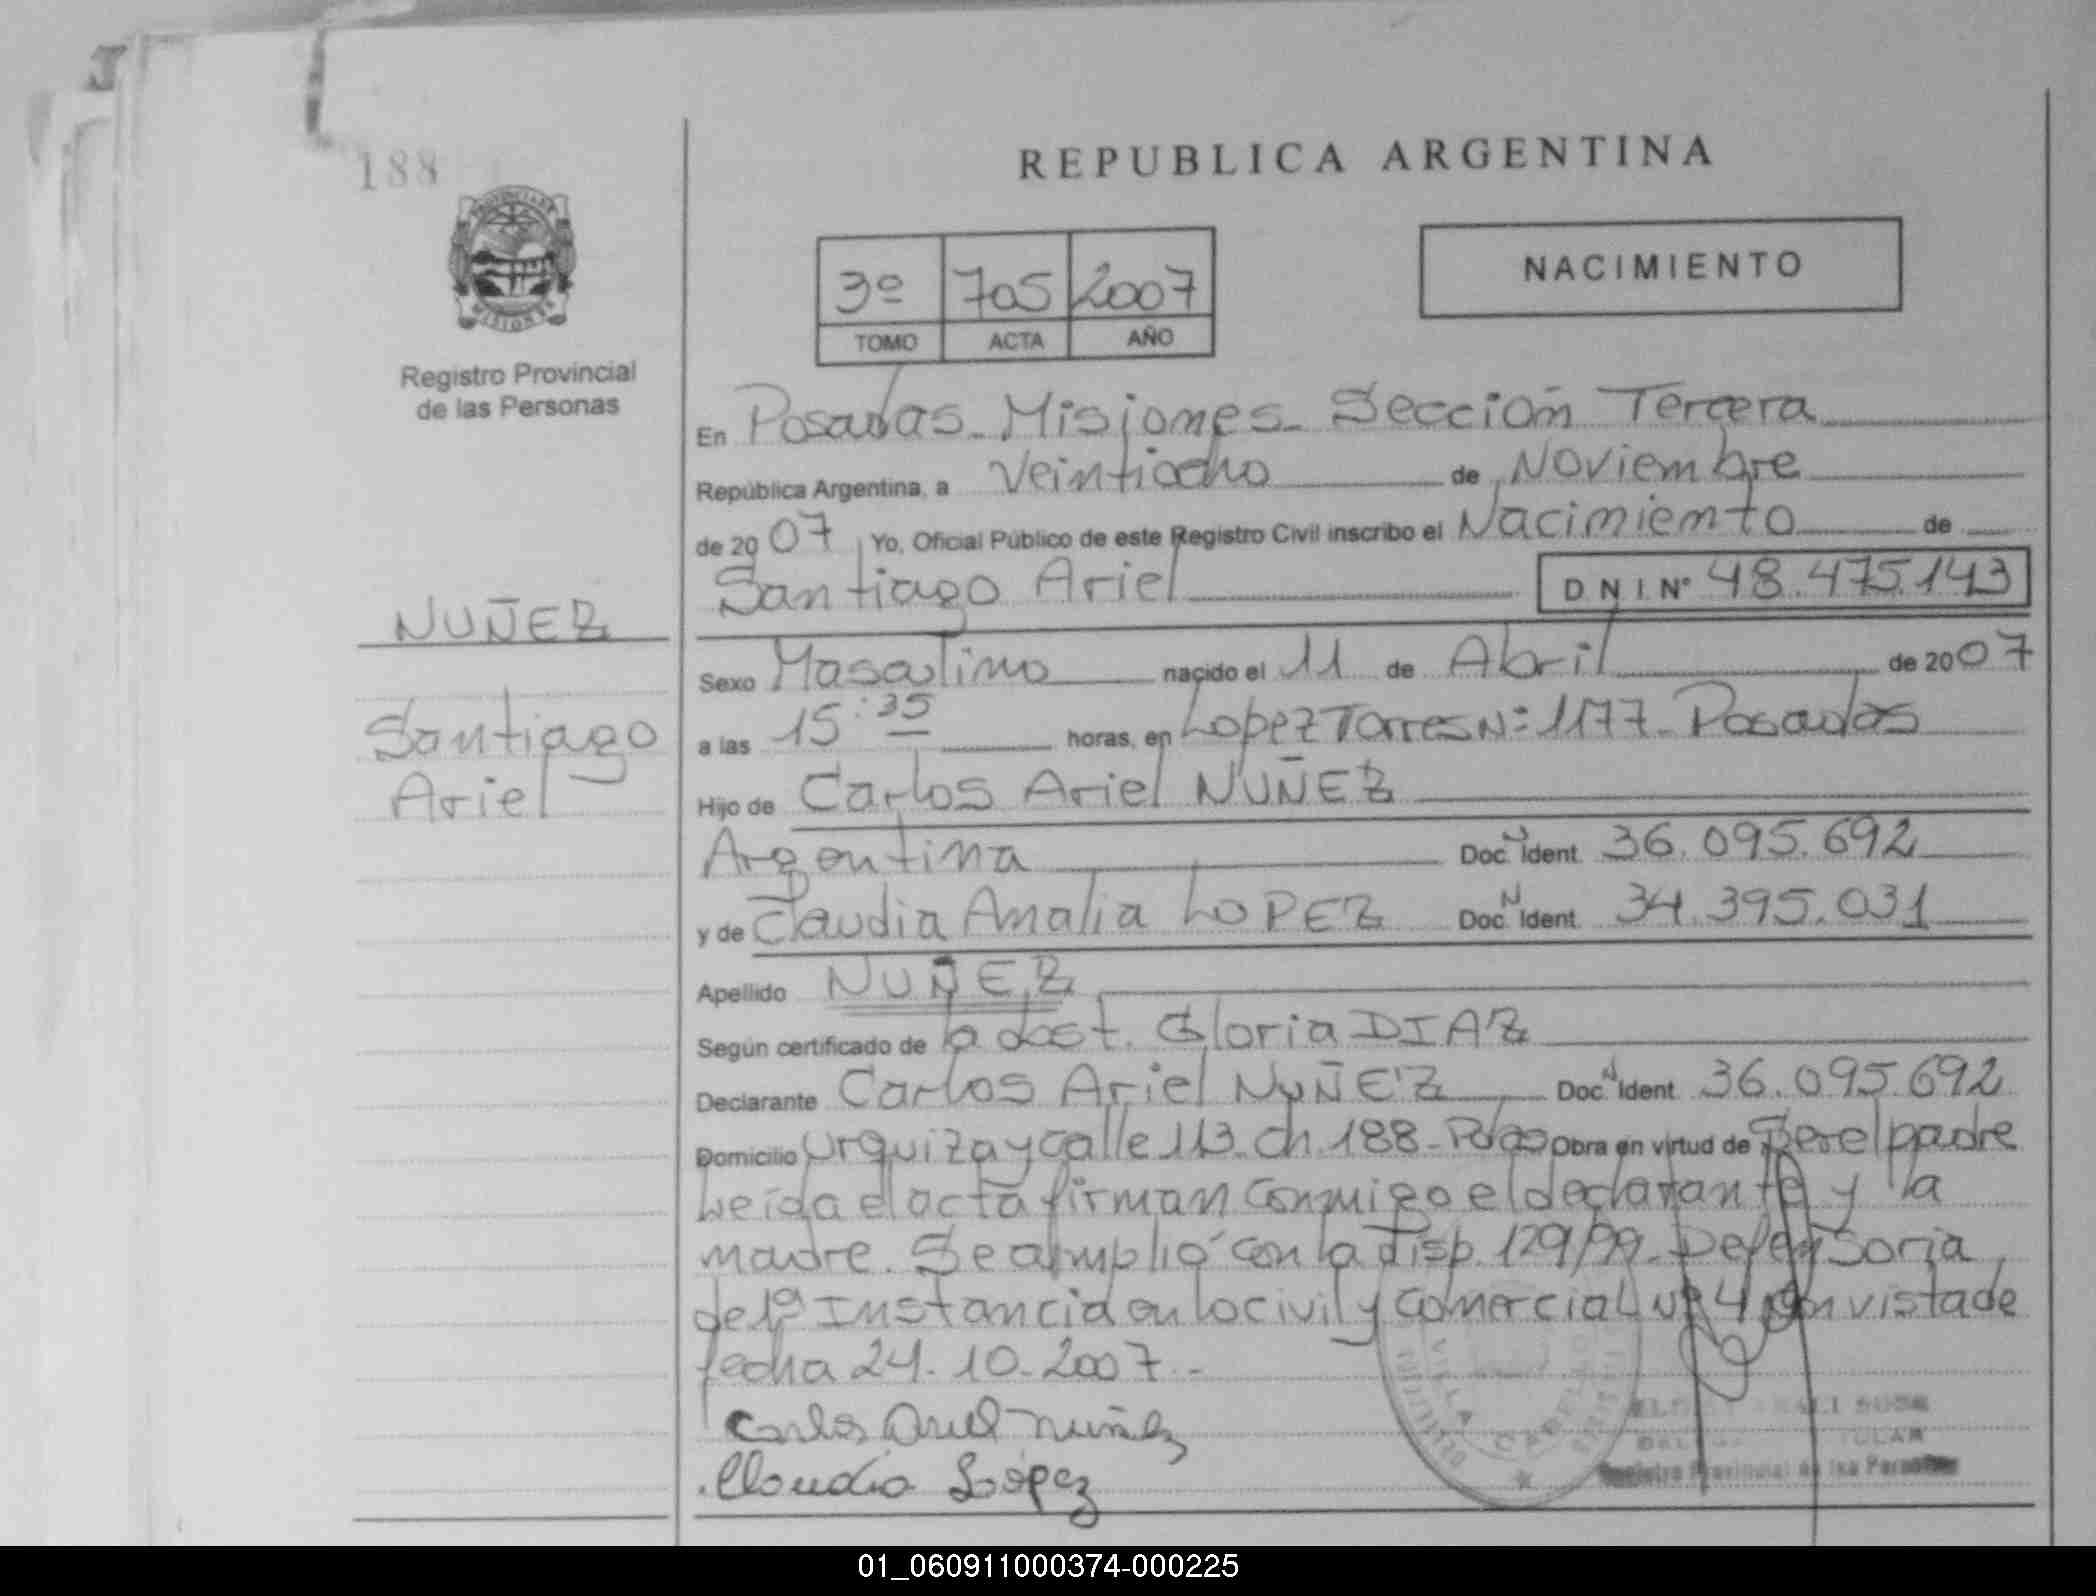 188
REPUBLICA ARGENTINA
PROVINCIA DE
MISIONES
Registro Provincial
de las Personas
3º 705 2007
TOMO ACTA AÑO
NACIMIENTO
En Posadas - Misiones - Sección Tercera
República Argentina, a Veintiocho de Noviembre
de 2007 Yo, Oficial Público de este Registro Civil inscribo el Nacimiento de
Santiago Ariel D N I Nº 48.475.143
NUÑEZ
Santiago
Ariel
Sexo Masculino nacido el 11 de Abril de 2007
a las 15:35 horas, en Lopez Torres Nº 1177 - Posadas
Hijo de Carlos Ariel NUÑEZ
Argentina Doc. N Ident. 36.095.692
y de Claudia Analia LOPEZ Doc. N Ident. 34.395.031
Apellido NUÑEZ
Según certificado de la Obst. Gloria DIAZ
Declarante Carlos Ariel NUÑEZ Doc. N Ident. 36.095.692
Domicilio Urquiza y calle 113 - ch. 188 - Pdas Obra en virtud de Ser el padre
Leída el acta firman conmigo el declarante y la
madre. Se amplió con la Disp. 129/99 - Defensoria
de 1ª Instancia en lo civil y Comercial Nº 4 con vista de
fecha 24.10.2007.-
Carlos Ariel Nuñez
Claudia López
Registro Provincial de las Personas
01_060911000374-000225